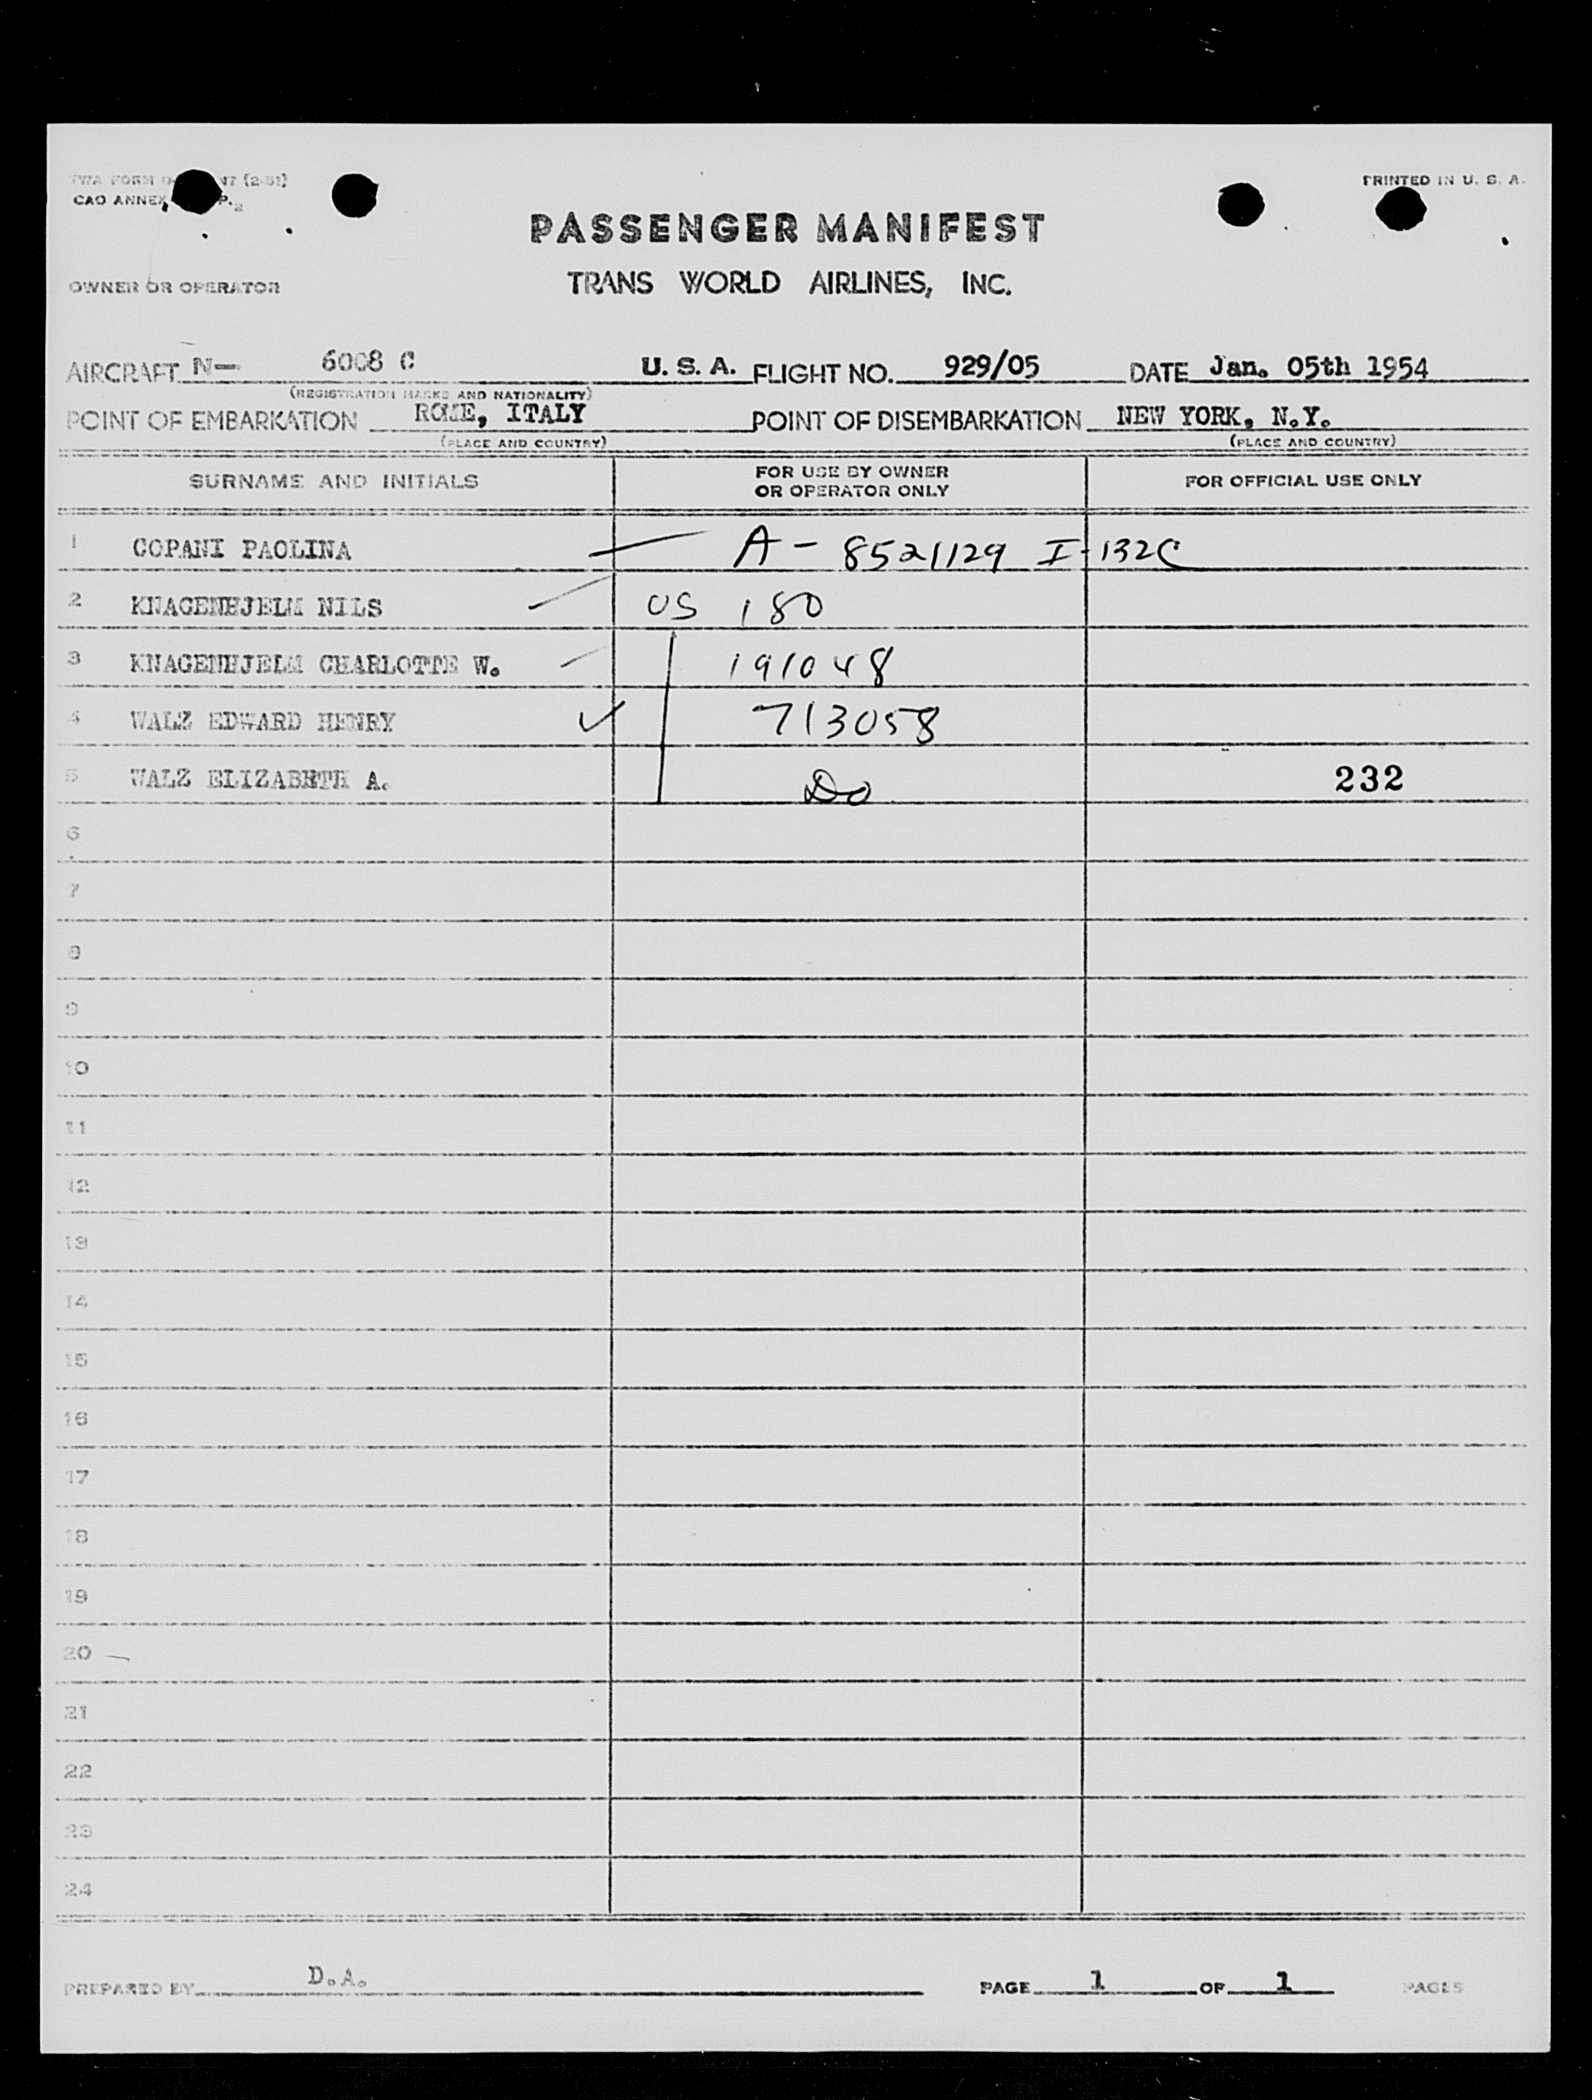 TWA FORM 47 (2-51)
PRINTED IN U. S. A.
CAO ANNEX P. 2
PASSENGER MANIFEST
OWNER OR OPERATOR
TRANS WORLD AIRLINES, INC.
AIRCRAFT N— 6008 C U. S. A. FLIGHT NO. 929/05 DATE Jan. 05th 1954
(REGISTRATION MARKS AND NATIONALITY)
POINT OF EMBARKATION ROME, ITALY POINT OF DISEMBARKATION NEW YORK, N.Y.
(PLACE AND COUNTRY) (PLACE AND COUNTRY)
SURNAME AND INITIALS FOR USE BY OWNER OR OPERATOR ONLY FOR OFFICIAL USE ONLY
1 COPANI PAOLINA A - 8521129 I-132C
2 KNAGENHJELM NILS US 180
3 KNAGENHJELM CHARLOTTE W. 191048
4 WALZ EDWARD HENRY 713058
5 WALZ ELIZABETH A. Do 232
6
7
8
9
10
11
12
13
14
15
16
17
18
19
20
21
22
23
24
PREPARED BY D.A. PAGE 1 OF 1 PAGES